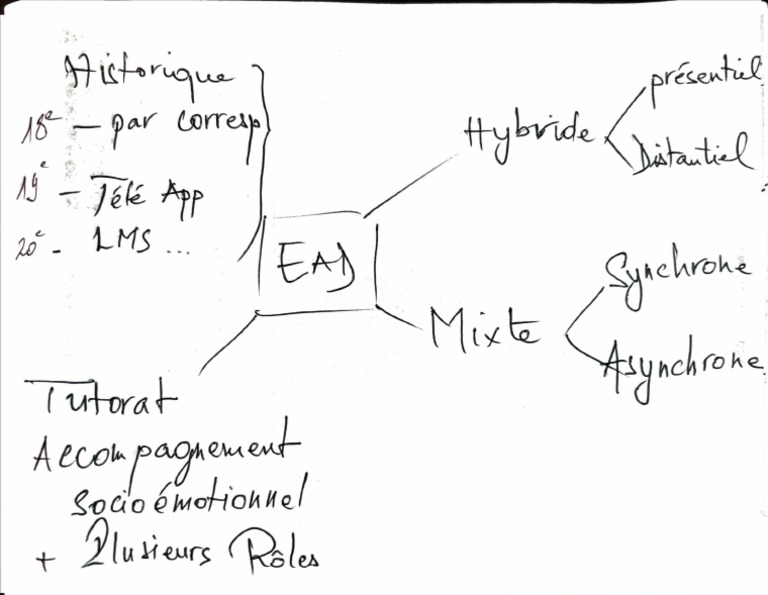 Historique
18e - par corresp
19e - Télé App
20e - LMS ...
EAD
Hybride
présentiel
Distantiel
Mixte
Synchrone
Asynchrone
Tutorat
Accompagnement
socioémotionnel
+ Plusieurs Rôles